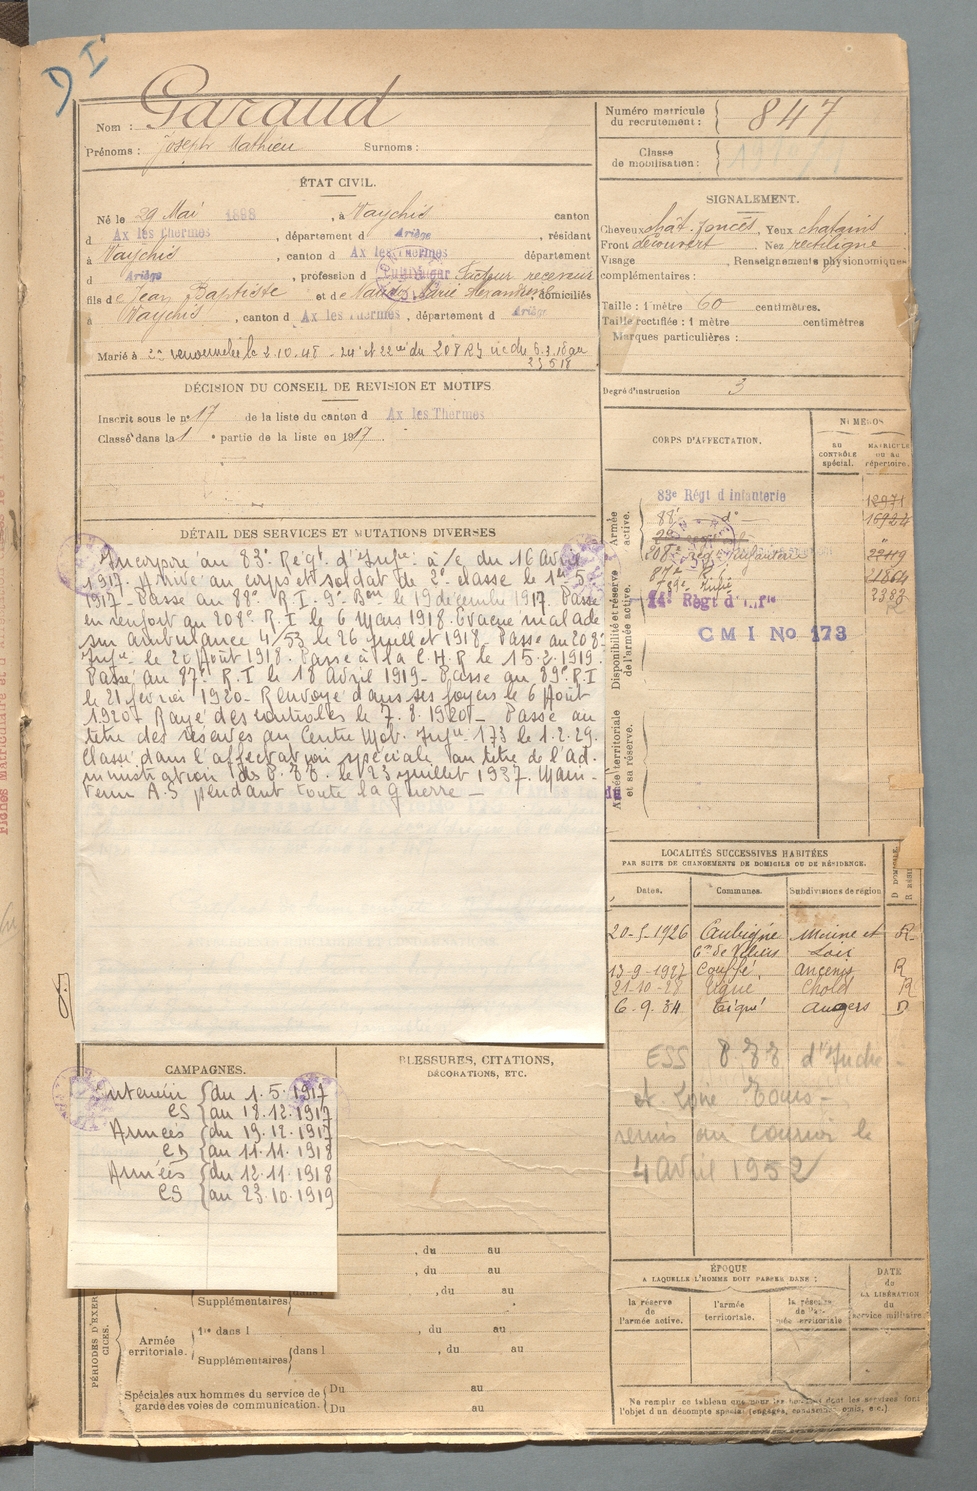 D I
Nom : Garaud
Prénoms : Joseph Mathieu Surnoms :
ÉTAT CIVIL.
Né le 29 Mai 1898, à Vaychis canton
d Ax les Thermes, département d Ariège, résidant
à Vaychis, canton d Ax les Thermes département
d Ariège, profession d Cultivateur Facteur receveur
fils de Jean Baptiste et de Marie domiciliés
à Vaychis, canton d Ax les Thermes, département d Ariège
Marié à
DÉCISION DU CONSEIL DE REVISION ET MOTIFS
Inscrit sous le no 17 de la liste du canton d Ax les Thermes
Classé dans la 1e partie de la liste en 1917.
DÉTAIL DES SERVICES ET MUTATIONS DIVERSES
Incorporé au 83e Régt d'Infie à/c du 16 Avril
1917. Arrivé au corps et soldat de 2e classe le 1er 5.
1917 - Passé au 88e R.I. 9e Bon le 19 décembre 1917. Passé
en renfort au 208e R.I le 6 Mars 1918. Evacué malade
sur ambulance 4/53 le 26 juillet 1918 - Passé au 208e
Infie le 20 Août 1918. Passé à la C.H.R le 15.2.1919.
Passé au 87e R.I le 18 Avril 1919 - Passé au 89e R.I
le 21 février 1920 - Renvoyé dans ses foyers le 6 Août
1920 - Rayé des contrôles le 7.8.1920 - Passé au
titre des réserves au Centre Mob. Infie 173 le 1.2.29.
Classé dans l'affectation spéciale au titre de l'ad-
ministration des P.T.T. le 23 juillet 1937. Main-
tenu A.S pendant toute la guerre -
CAMPAGNES.
Intérieur { du 1.5.1917
CS { au 18.12.1917
Armées { du 19.12.1917
CD { au 11.11.1918
Armées { du 12.11.1918
CS { au 23.10.1919
BLESSURES, CITATIONS,
DÉCORATIONS, ETC.
PÉRIODES D'EXERCICES.
, du au
, du au
, du au
Supplémentaires
Armée
territoriale.
1re dans l , du au
Supplémentaires { dans l , du au
Spéciales aux hommes du service de
garde des voies de communication.
Du au
Du au
Numéro matricule
du recrutement : 847
Classe
de mobilisation :
SIGNALEMENT.
Cheveux chât. foncés, Yeux chatains
Front découvert Nez rectiligne
Visage , Renseignements physionomiques
complémentaires :
Taille : 1 mètre 60 centimètres.
Taille rectifiée : 1 mètre centimètres
Marques particulières :
Degré d'instruction 3
CORPS D'AFFECTATION.
NUMÉROS
AU CONTRÔLE spécial.
MATRICULE OU AU répertoire.
Armée active.
Disponibilité et réserve de l'armée active.
Armée territoriale et sa réserve.
83e Régt d Infanterie 12971
88e do 16924
208e Rég. d'Infanterie
87e R.I.
C M I No 173
LOCALITÉS SUCCESSIVES HABITÉES
PAR SUITE DE CHANGEMENTS DE DOMICILE OU DE RÉSIDENCE.
Dates. Communes. Subdivisions de région
20-5-1926 Aubigné Maine et Loir R
13-9-1927 Couffé, Ancenis R
21-10-28 Cholet R
6-9-34 Tigné Angers D
ESS P.T.T d'Indre
et Loire Tours -
remis au courrier le
4 avril 1952
ÉPOQUE
A LAQUELLE L'HOMME DOIT PASSER DANS :
la réserve de l'armée active.
l'armée territoriale.
la réserve de l'armée territoriale
DATE de LA LIBÉRATION du service militaire
Ne remplir ce tableau que pour les hommes dont les services font
l'objet d'un décompte spécial (engagés, omis, etc.)